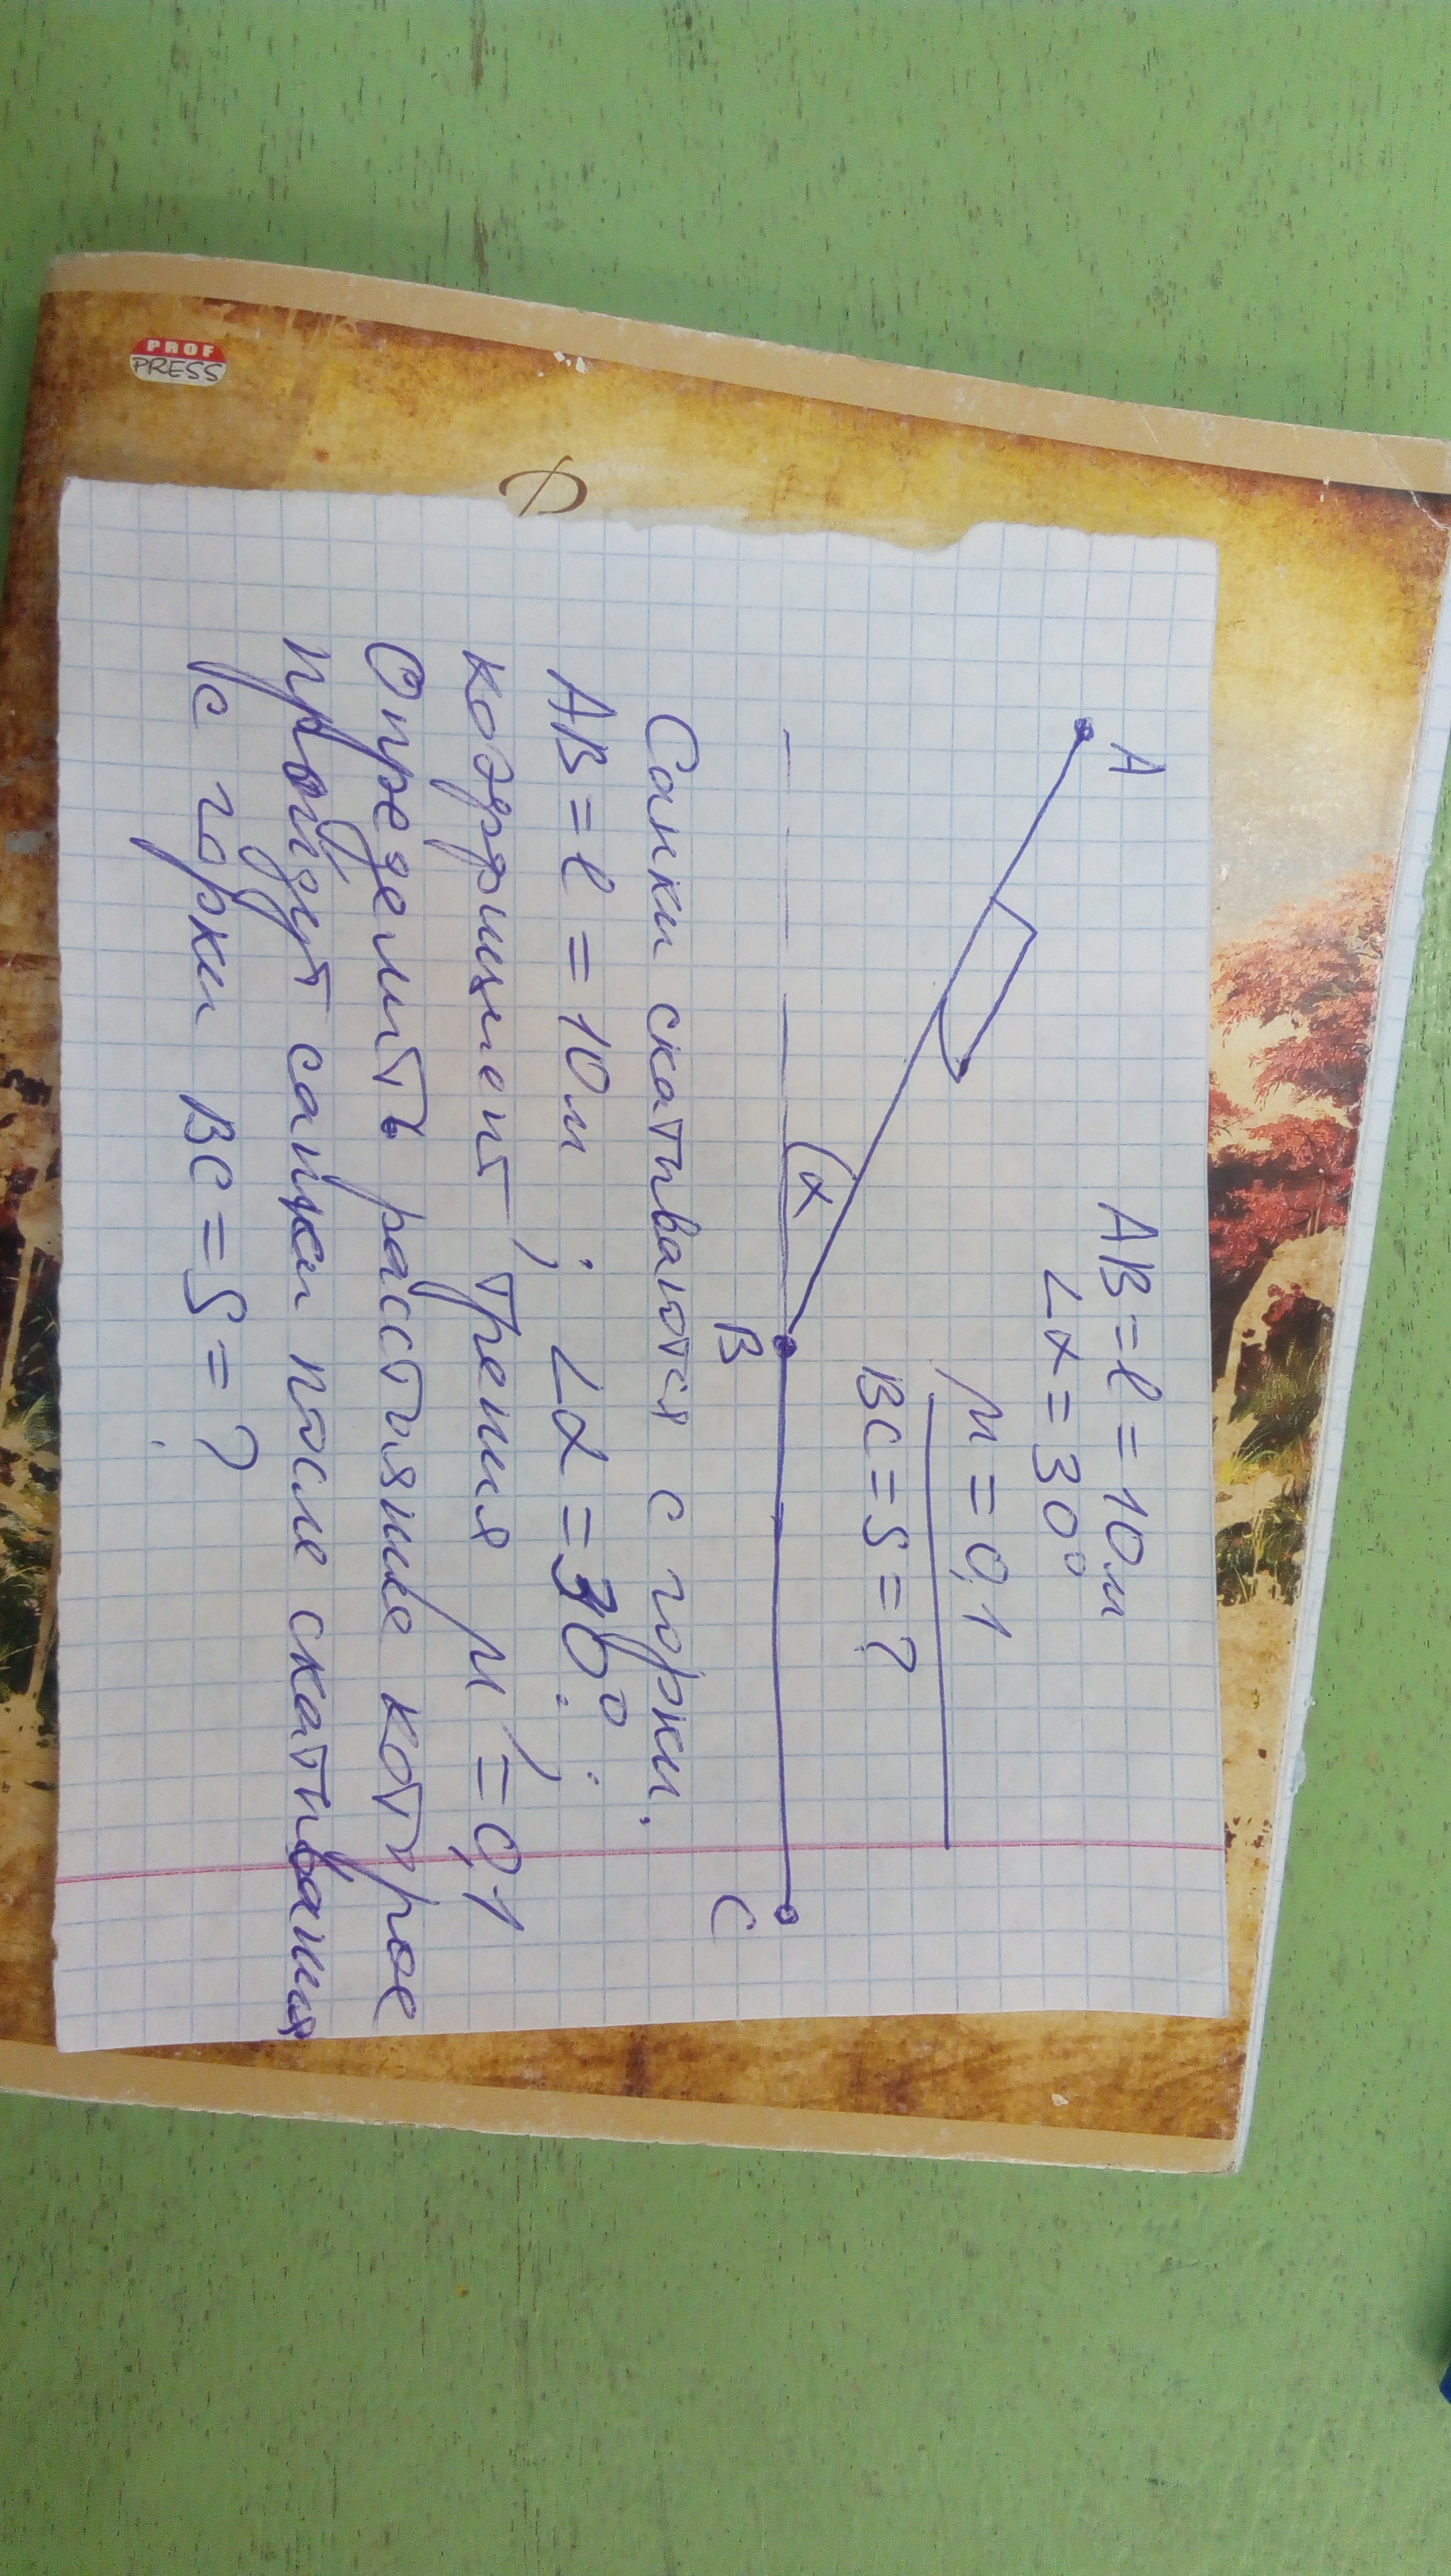 PROF
PRESS
A
AB = l = 10м
∠α = 30°
μ = 0,1
BC = S = ?
α
B
C
Санки скатываются с горки.
AB = l = 10м ; ∠α = 30° ;
коэффициент трения μ = 0,1
Определить расстояние которое
пройдут санки после скатывания
с горки BC = S = ?